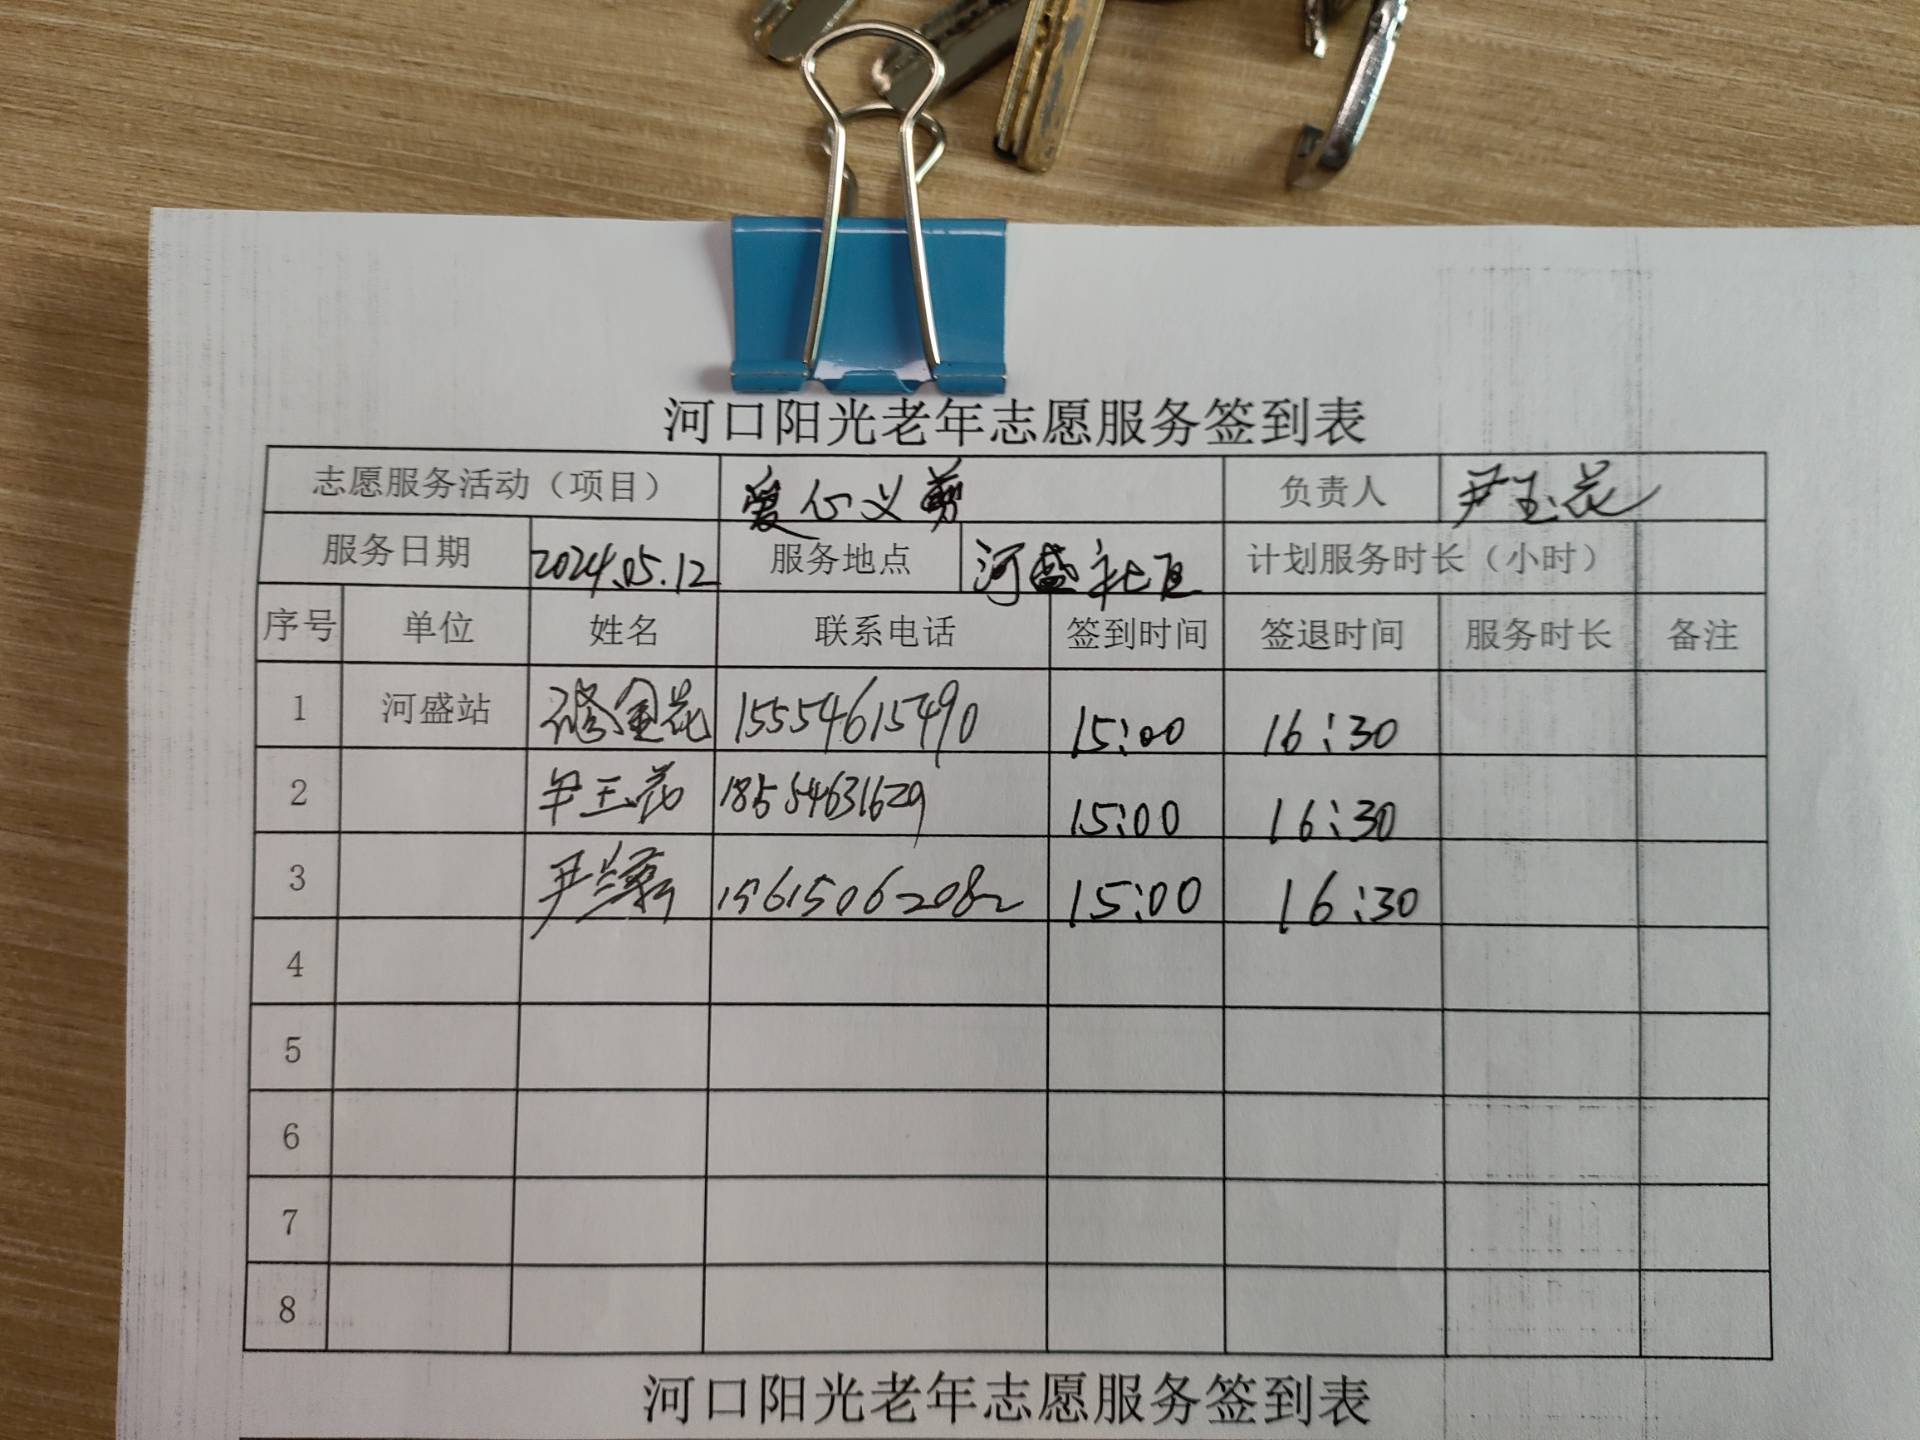 河口阳光老年志愿服务签到表
志愿服务活动（项目） 爱心义剪 负责人 尹玉花
服务日期 2024.05.12 服务地点 河盛社区 计划服务时长（小时）
序号 单位 姓名 联系电话 签到时间 签退时间 服务时长 备注
1 河盛站 金花 15554615490 15:00 16:30
2 尹玉花 18554631629 15:00 16:30
3 尹兰 15615062082 15:00 16:30
4
5
6
7
8
河口阳光老年志愿服务签到表